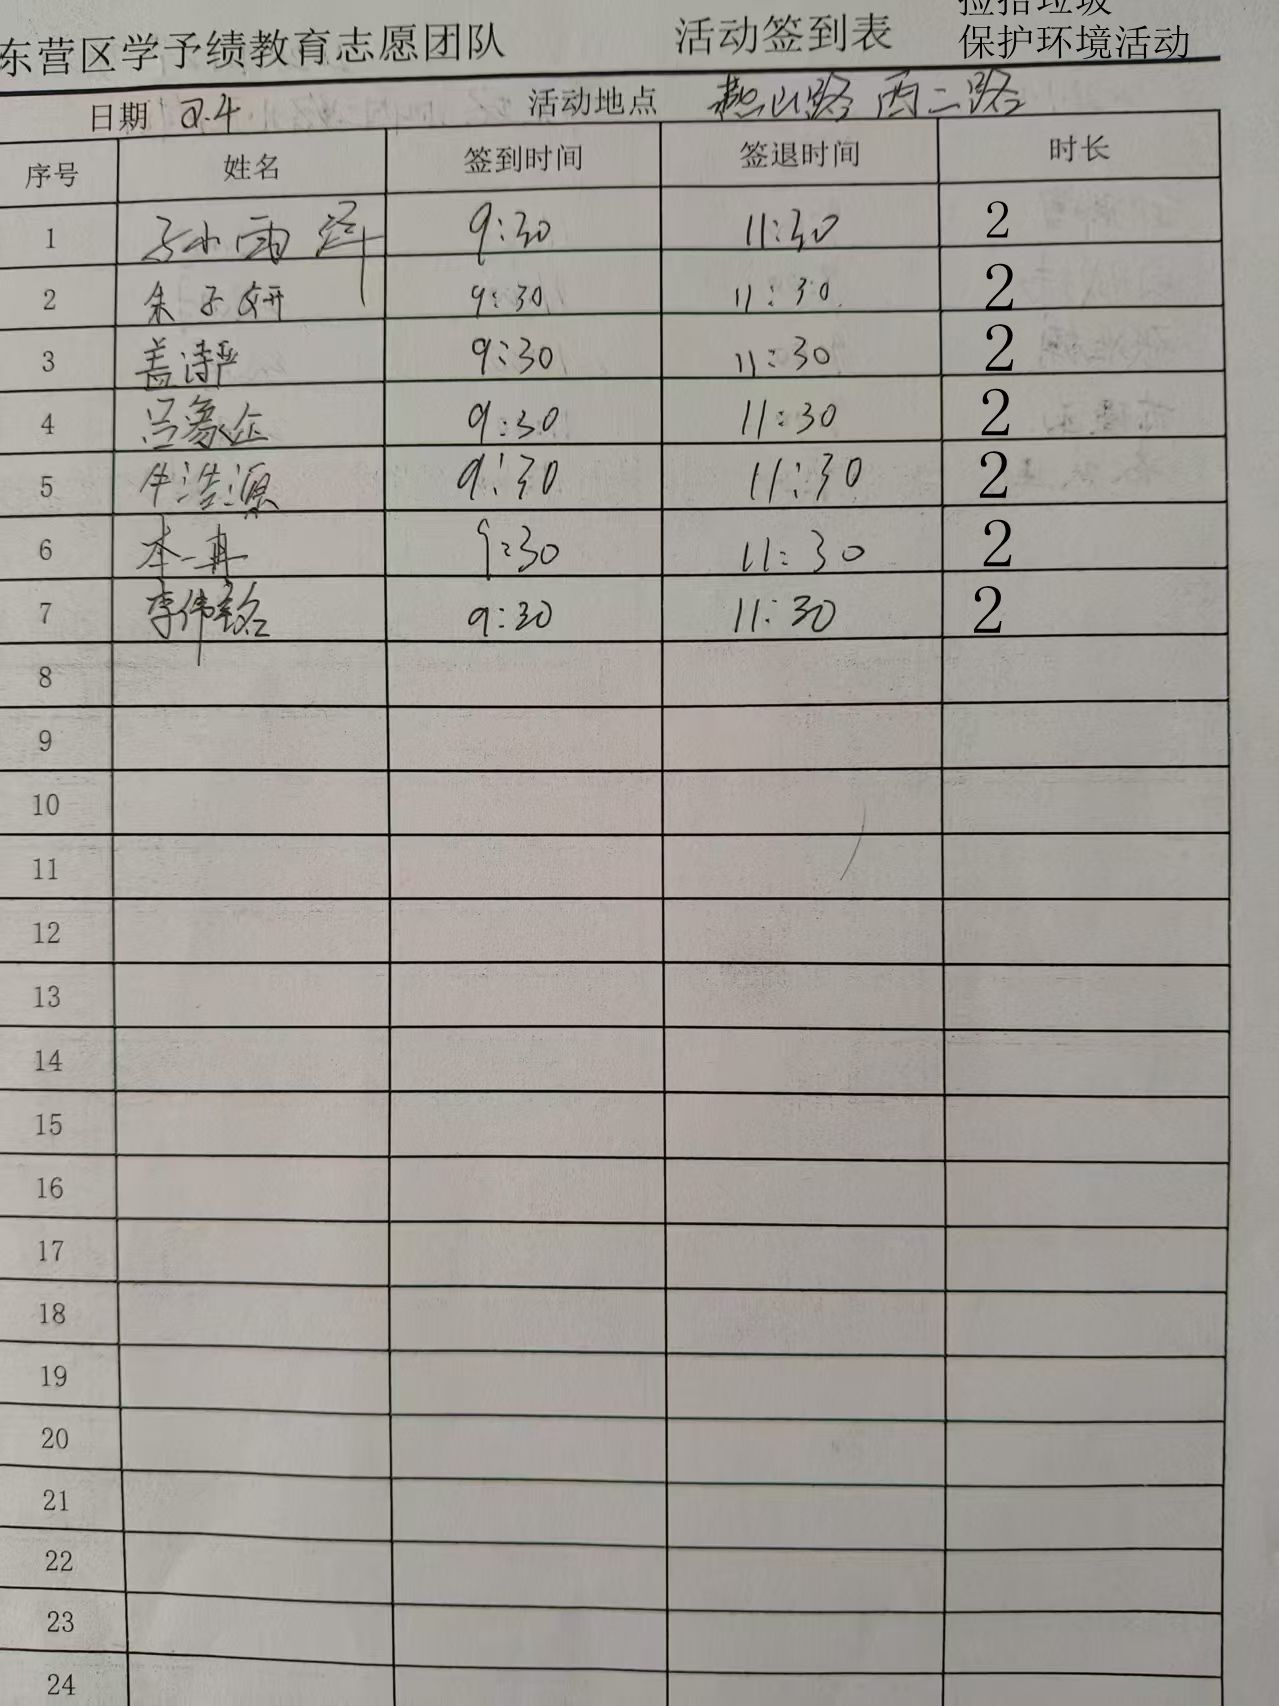 捡拾垃圾
东营区学予绩教育志愿团队 活动签到表 保护环境活动
日期 2.4 活动地点 燕山路 西二路
序号 姓名 签到时间 签退时间 时长
1 9:30 11:30 2
2 朱子妍 9:30 11:30 2
3 盖诗严 9:30 11:30 2
4 吕象 9:30 11:30 2
5 牛浩源 9:30 11:30 2
6 本一冉 9:30 11:30 2
7 李伟铭 9:30 11:30 2
8
9
10
11
12
13
14
15
16
17
18
19
20
21
22
23
24